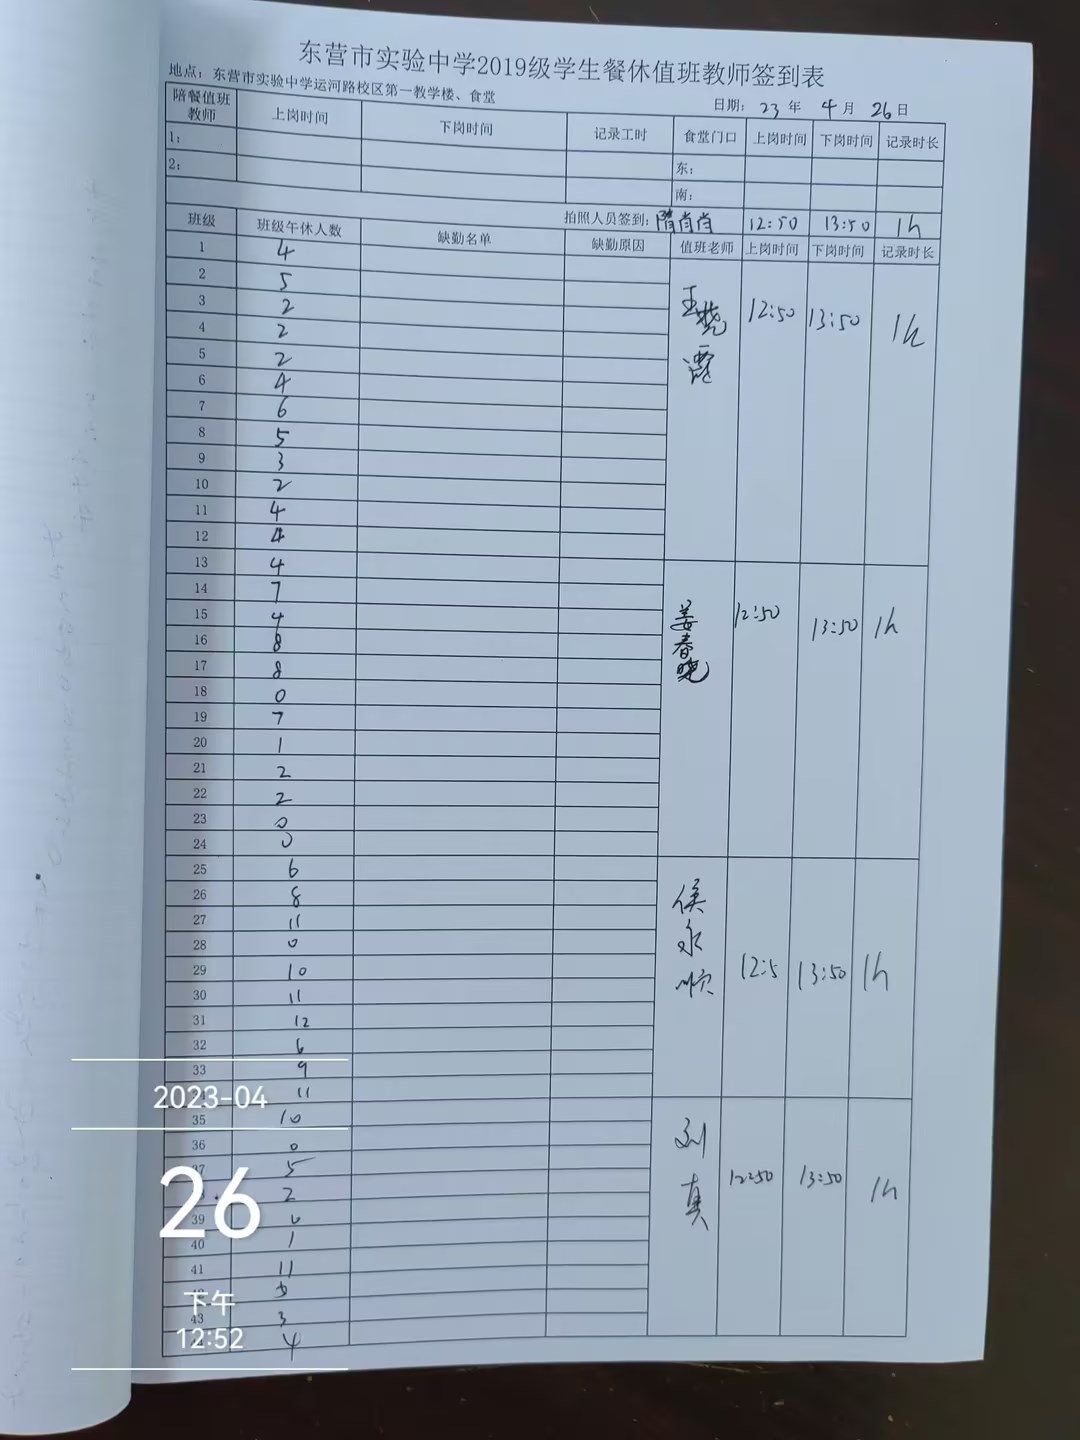 东营市实验中学2019级学生餐休值班教师签到表
地点：东营市实验中学运河路校区第一教学楼、食堂
日期： 23 年 4 月 26 日
陪餐值班教师 上岗时间 下岗时间 记录工时 食堂门口 上岗时间 下岗时间 记录时长
1： 东：
2： 南：
拍照人员签到：隋肖肖 12:50 13:50 1h
班级 班级午休人数 缺勤名单 缺勤原因 值班老师 上岗时间 下岗时间 记录时长
1 4
2 5
3 2
4 2
5 2
6 4
7 6
8 5
9 3
10 2
11 4
12 4
王晓露 12:50 13:50 1h
13 4
14 7
15 4
16 8
17 8
18 0
19 7
20 1
21 2
22 2
23 0
24 0
姜春晓 12:50 13:50 1h
25 6
26 8
27 11
28 0
29 10
30 11
31 12
32 6
33 9
11
侯永顺 12:5 13:50 1h
35 10
36 0
37 5
2
39
40 1
41 11
43 3
4
刘真 12:50 13:50 1h
2023-04
26
下午
12:52